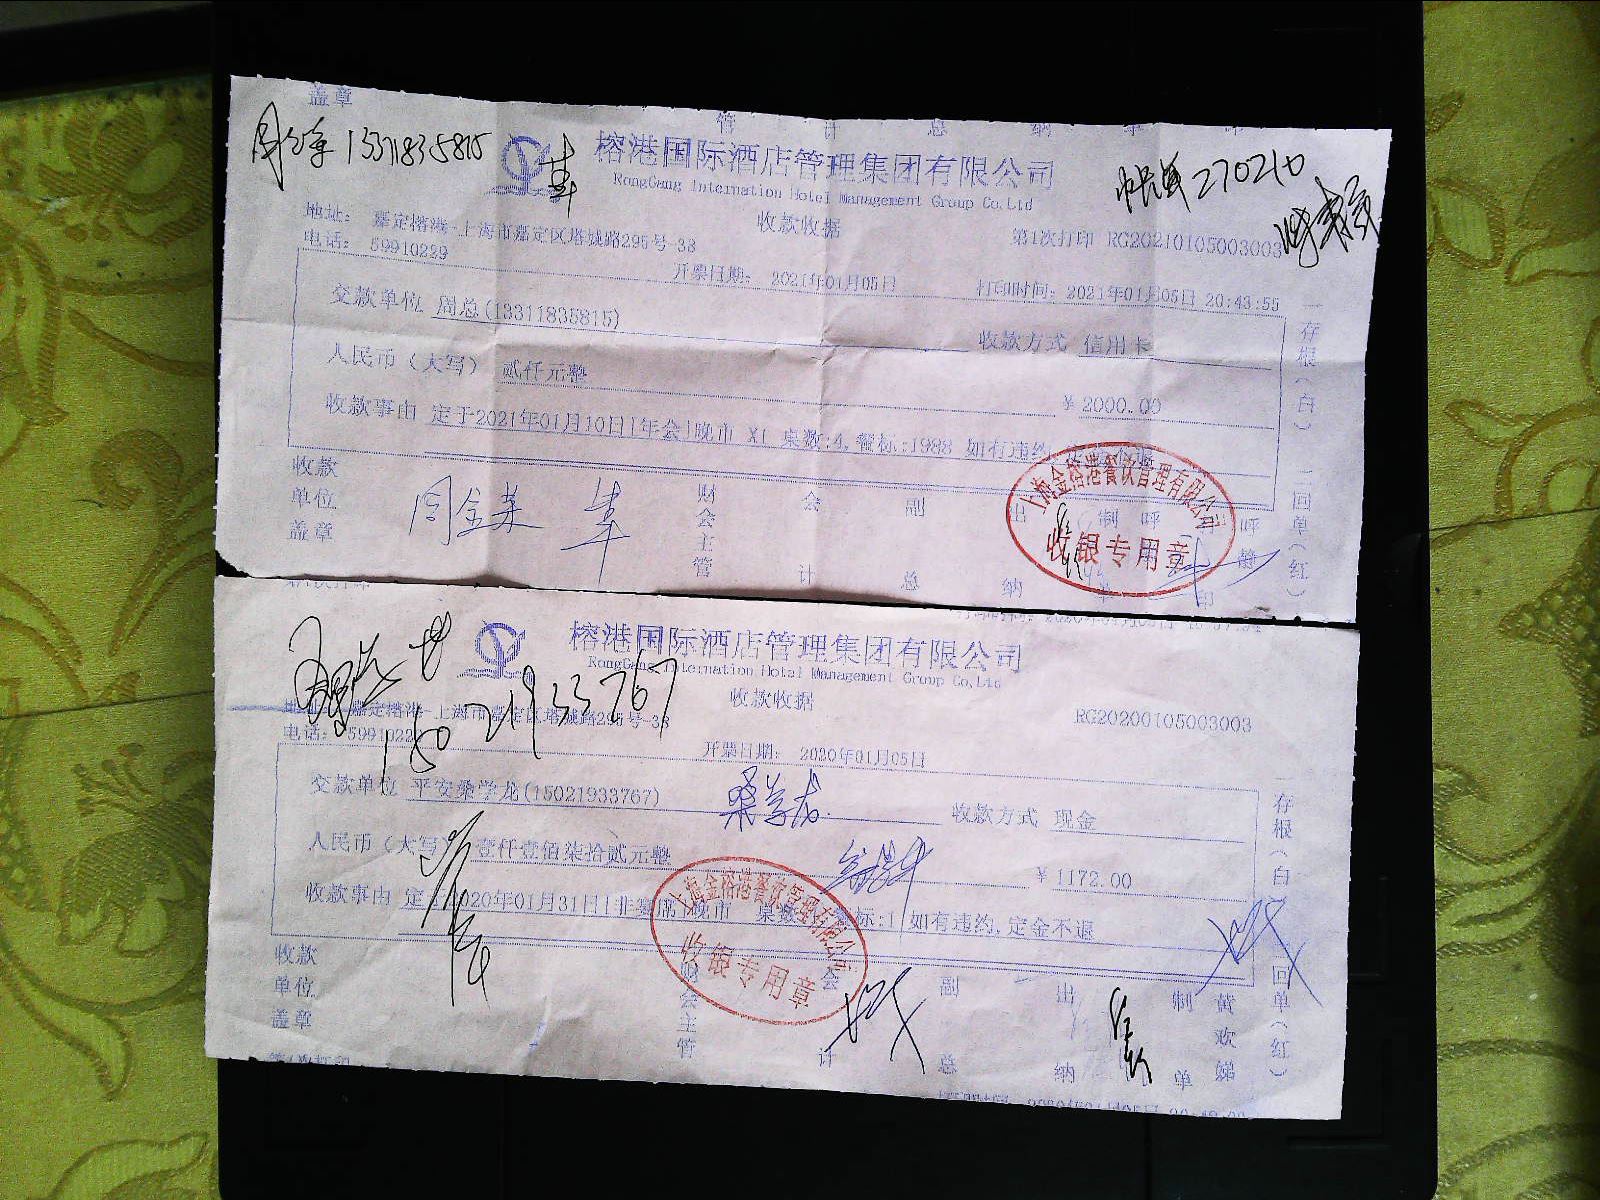 盖章
管 计 总 纳 单 印
13371835815
榕港国际酒店管理集团有限公司
RongGang Internation Hotel Management Group Co,Ltd
270210
收款收据
地址: 嘉定榕港-上海市嘉定区塔城路295号-38
第1次打印 RG20210105003003
电话: 59910229
开票日期: 2021年01月05日
打印时间: 2021年01月05日 20:43:55
交款单位 周总(13311835815)
收款方式 信用卡
人民币(大写) 贰仟元整
¥ 2000.00
收款事由 定于2021年01月10日|年会|晚市 X1 桌数:4,餐标:1988 如有违约,
一存根(白) 二回单(红)
收款单位盖章
周金菜
财会主管
会计
副总
出纳
制单
呼
印
静
上海金榕港餐饮管理有限公司
收银专用章
榕港国际酒店管理集团有限公司
RongGang Internation Hotel Management Group Co,Ltd
收款收据
地址: 嘉定榕港-上海市嘉定区塔城路295号-38
RG20200105003003
电话: 5991022
15021933767
开票日期: 2020年01月05日
交款单位 平安桑学龙(15021933767)
桑学龙
收款方式 现金
人民币(大写) 壹仟壹佰柒拾贰元整
¥ 1172.00
收款事由 定于2020年01月31日|非宴席|晚市 桌数 标:1 如有违约,定金不退
一存根(白) 二回单(红)
收款单位盖章
财会主管
会计
副总
出纳
制单
黄欢娣
上海金榕港餐饮管理有限公司
收银专用章